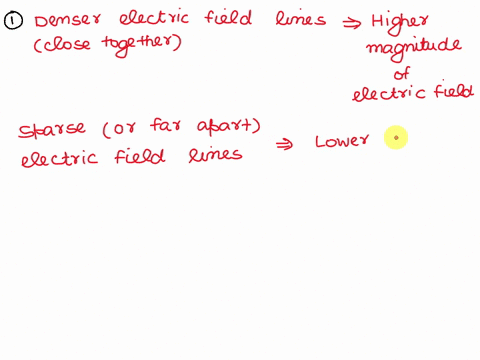 ① Denser electric field lines ⇒ Higher
(close together) magnitude
of
electric field
Sparse (or far apart)
electric field lines ⇒ Lower